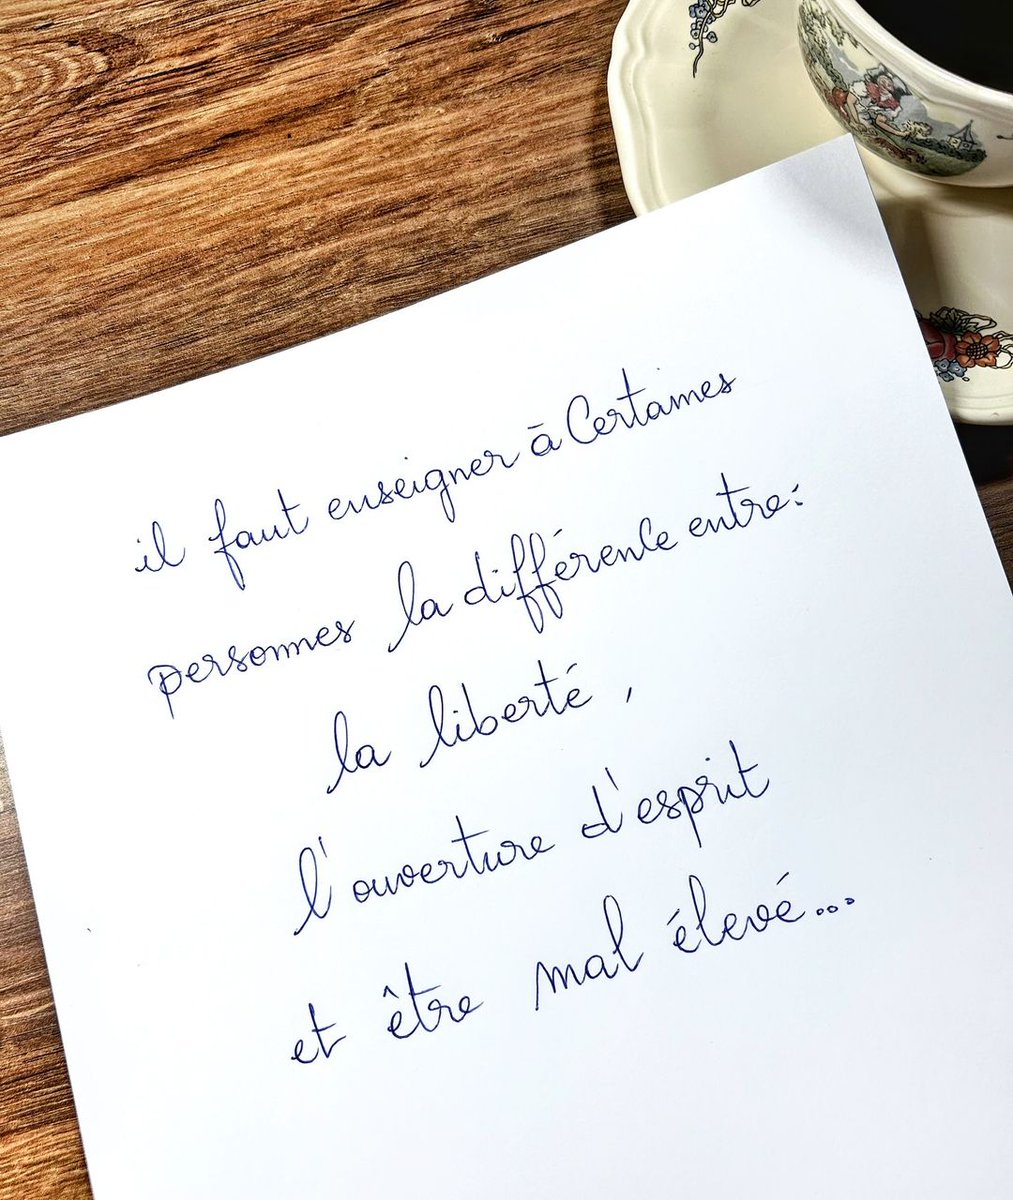 il faut enseigner à Certaines
personnes la différence entre:
la liberté,
l'ouverture d'esprit
et être mal élevé...